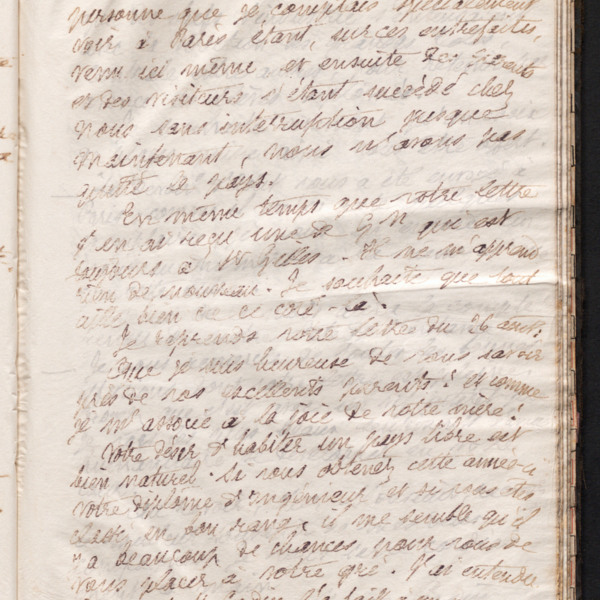 personne que je comptais spécialement
voir à Paris étant, sur ces entrefaites,
venu ici même et ensuite des parents
et des visiteurs s'étant succédé chez
nous sans interruption jusque
maintenant, nous n'avons pas
quitté le pays.
En même temps que votre lettre
j'en ai reçu une de G N qui est
toujours à St Gilles. Il ne m'apprend
rien de nouveau. Je souhaite que tout
aille bien de ce côté-là.
Je reprends votre lettre du 26 août.
Que je suis heureuse de vous savoir
près de vos excellents parents! et comme
je m'associe à la joie de votre mère!
Votre désir d'habiter un pays libre est
bien naturel. Si vous obtenez cette année-ci
votre diplome d'ingénieur et si vous êtes
classé en bon rang, il me semble qu'il
y a beaucoup de chances pour vous de
vous placer à votre gré. J'ai entendu